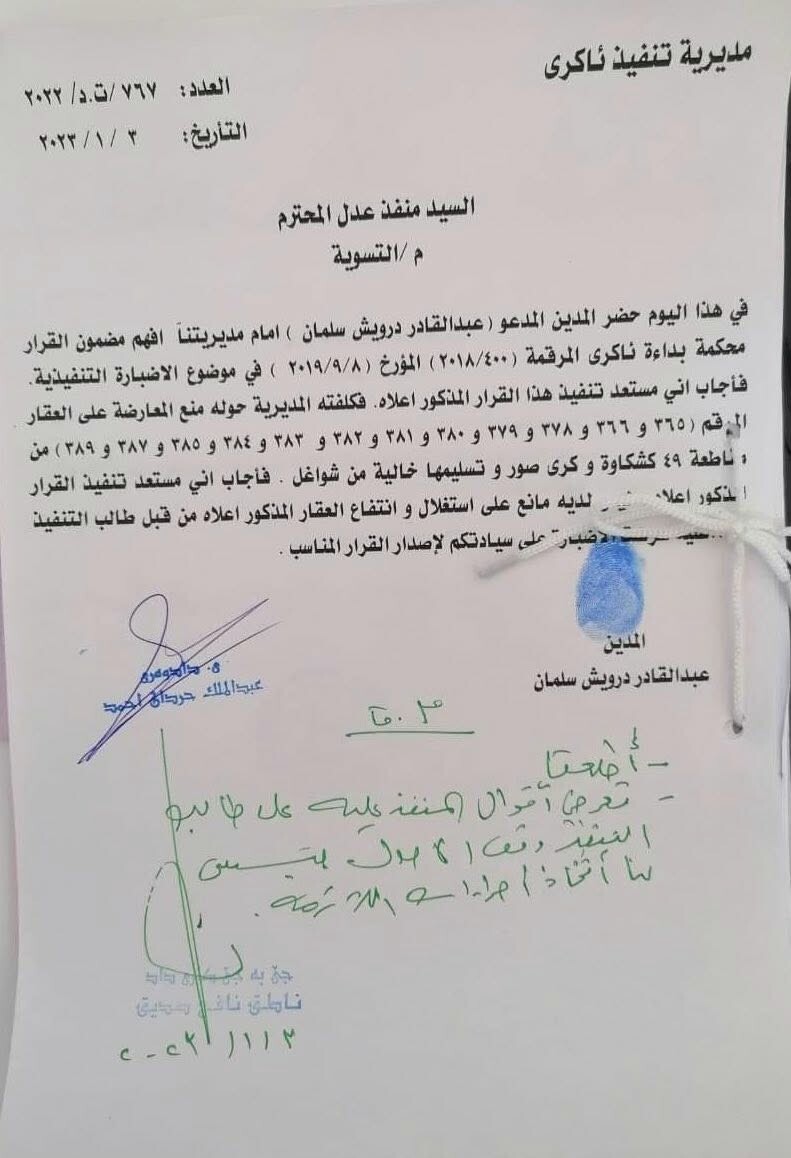 مديرية تنفيذ ئاكرى
العدد: ٧٦٧ /ت.د/ ٢٠٢٢
التأريخ: ٣ / ١ / ٢٠٢٣
السيد منفذ عدل المحترم
م /التسوية
في هذا اليوم حضر المدين المدعو (عبدالقادر درويش سلمان ) امام مديريتنا افهم مضمون القرار
محكمة بداءة ئاكرى المرقمة (٢٠١٨/٤٠٠) المؤرخ (٢٠١٩/٩/٨ ) في موضوع الاضبارة التنفيذية.
فأجاب اني مستعد تنفيذ هذا القرار المذكور اعلاه. فكلفته المديرية حوله منع المعارضة على العقار
المرقم (٣٦٥ و ٣٦٦ و ٣٧٨ و ٣٧٩ و ٣٨٠ و ٣٨١ و ٣٨٢ و ٣٨٣ و ٣٨٤ و ٣٨٥ و ٣٨٧ و ٣٨٩) من
مقاطعة ٤٩ كشكاوة و كرى صور و تسليمها خالية من شواغل . فأجاب اني مستعد تنفيذ القرار
المذكور اعلاه لديه مانع على استغلال و انتفاع العقار المذكور اعلاه من قبل طالب التنفيذ
الاضبارة على سيادتكم لإصدار القرار المناسب .
المدين
عبدالقادر درويش سلمان
عبدالملك حردان احمد
- أطلعنا
- تعرض أقوال المنفذ عليه على طالب
التنفيذ
لنا أتخاذ اجراءات اللازمة .
ناطق نافع صديق
٢٠٢٣/١/٣